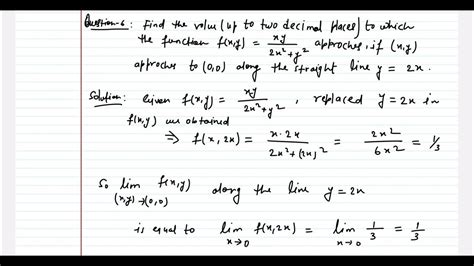 Question-6: find the value (up to two decimal places) to which
the function f(x,y) = xy / 2x²+y² approches, if (x,y)
approches to (0,0) along the straight line y = 2x.
Solution: Given f(x,y) = xy / 2x²+y² , replaced y=2x in
f(x,y) we obtained
⇒ f(x,2x) = x·2x / 2x²+(2x)² = 2x² / 6x² = 1/3
So lim (x,y)→(0,0) f(x,y) along the line y=2x
is equal to lim x→0 f(x,2x) = lim x→0 1/3 = 1/3